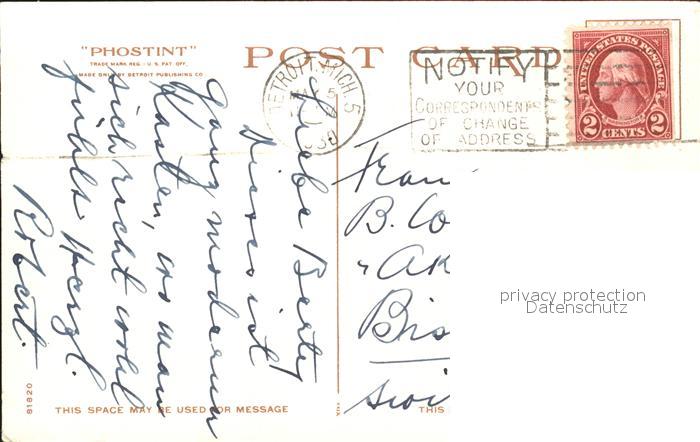 "PHOSTINT"
TRADE MARK REG. U.S. PAT. OFF.
MADE ONLY BY DETROIT PUBLISHING CO
POST CARD
DETROIT, MICH. 5
MAY 5
1930
NOTIFY
YOUR
CORRESPONDENTS
OF CHANGE
OF ADDRESS
UNITED STATES POSTAGE
2 CENTS 2
Liebe Berty
Dieses ist
ganz moderner
Kasten, wo man
sich recht wohl
fühlt. Herzl.
Robert.
Frau
B. Co
Bis
privacy protection
Datenschutz
81820
THIS SPACE MAY BE USED FOR MESSAGE
THIS